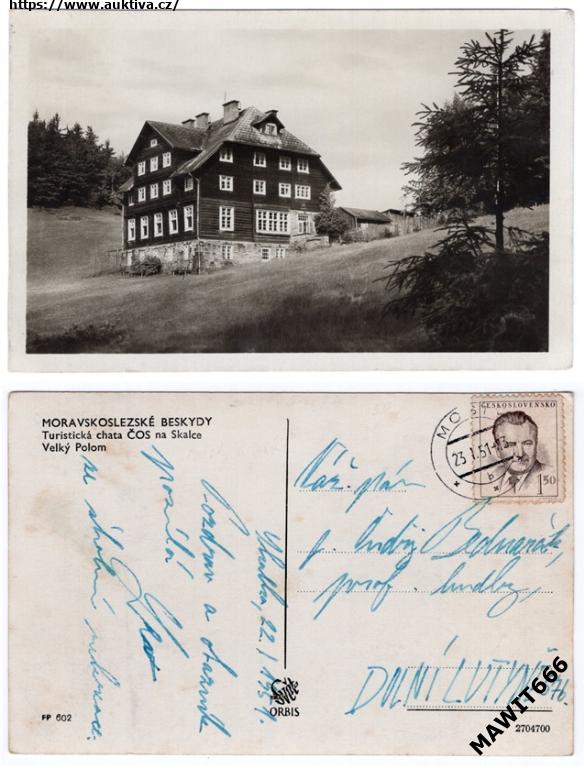 https://www.auktiva.cz/
MORAVSKOSLEZSKÉ BESKYDY
Turistická chata ČOS na Skalce
Velký Polom
ČESKOSLOVENSKO
MOST
23.I.51-13
b
1.50
Skalka, 22./1. 1951.
Pozdrav a obrázek
posílá
Váž. pán
p. Bednarčík
prof. hudby,
DOLNÍ LUTYNĚ
Svět
ORBIS
FP 602
2704700
MAWIT666